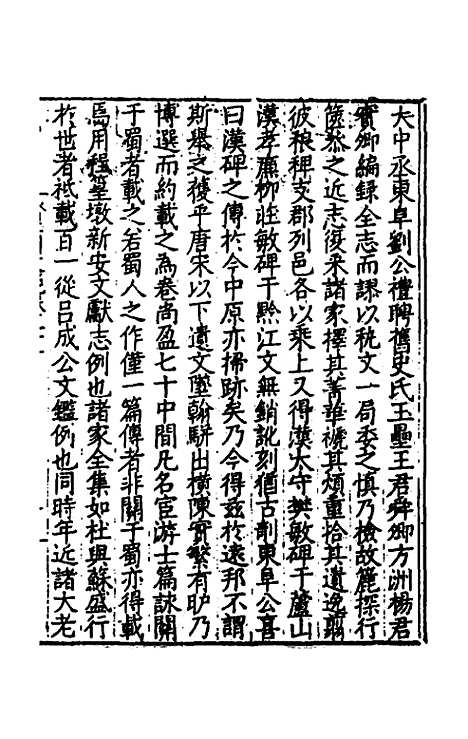 大中丞東阜劉公禮聘舊史氏玉壘王君舜卿方洲楊君
實卿編錄全志而謬以秇文一局委之慎乃檢故簏探行
篋叅之近志復采諸家擇其菁雅褫其煩重拾其遺逸翦
彼稂稗支郡列邑各以乘上又得漢太守樊敏碑于蘆山
漢孝廉柳莊敏碑于黔江文無銷訛刻猶古剞東阜公喜
曰漢碑之傳於今中原亦掃跡矣乃今得茲於遠邦不謂
斯舉之穫乎唐宋以下遺文墜翰駢出橫陳實繁有旷乃
博選而約載之為卷尚盈七十中間凡名宦游士篇詠關
于蜀者載之若蜀人之作僅一篇傳者非關于蜀亦得載
焉用程篁墩新安文獻志例也諸家全集如杜與蘇盛行
於世者祇載百一從呂成公文鑑例也同時年近諸大老